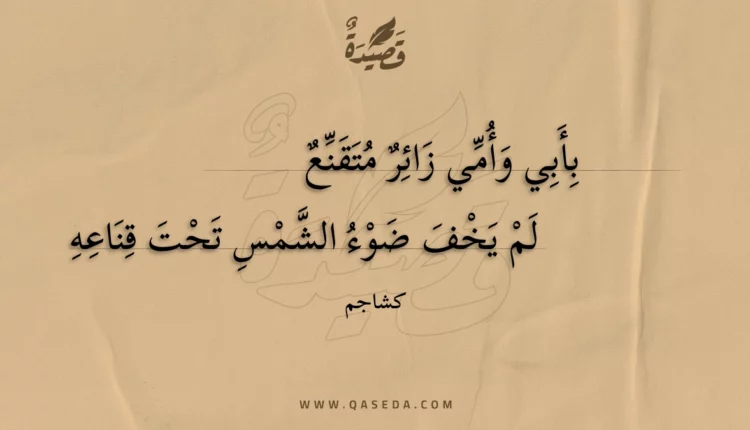 قَصِيْدَةٌ
بِأَبِي وَأُمِّي زَائِرٌ مُتَقَنِّعٌ
لَمْ يَخْفَ ضَوْءُ الشَّمْسِ تَحْتَ قِنَاعِهِ
كشاجم
WWW.QASEDA.COM